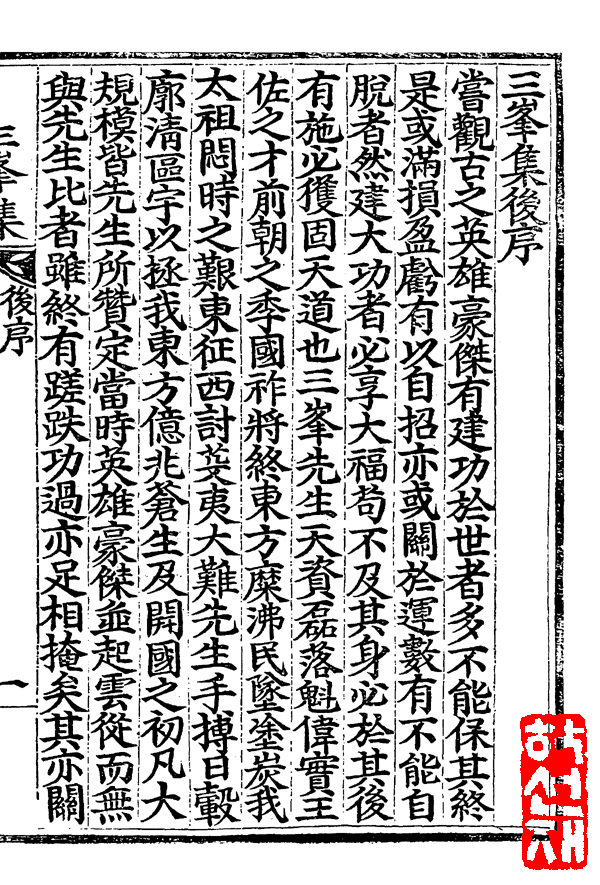 三峯集後序
嘗觀古之英雄豪傑有建功於世者多不能保其終
是或滿損盈虧有以自招亦或關於運數有不能自
脫者然建大功者必享大福苟不及其身必於其後
有施必獲固天道也三峯先生天資磊落魁偉實王
佐之才前朝之季國祚將終東方糜沸民墜塗炭我
太祖悶時之艱東征西討芟夷大難先生手搏日轂
廓淸區宇以拯我東方億兆蒼生及開國之初凡大
規模皆先生所贊定當時英雄豪傑並起雲從而無
與先生比者雖終有蹉跌功過亦足相掩矣其亦關
三峯集
後序
一
한선재